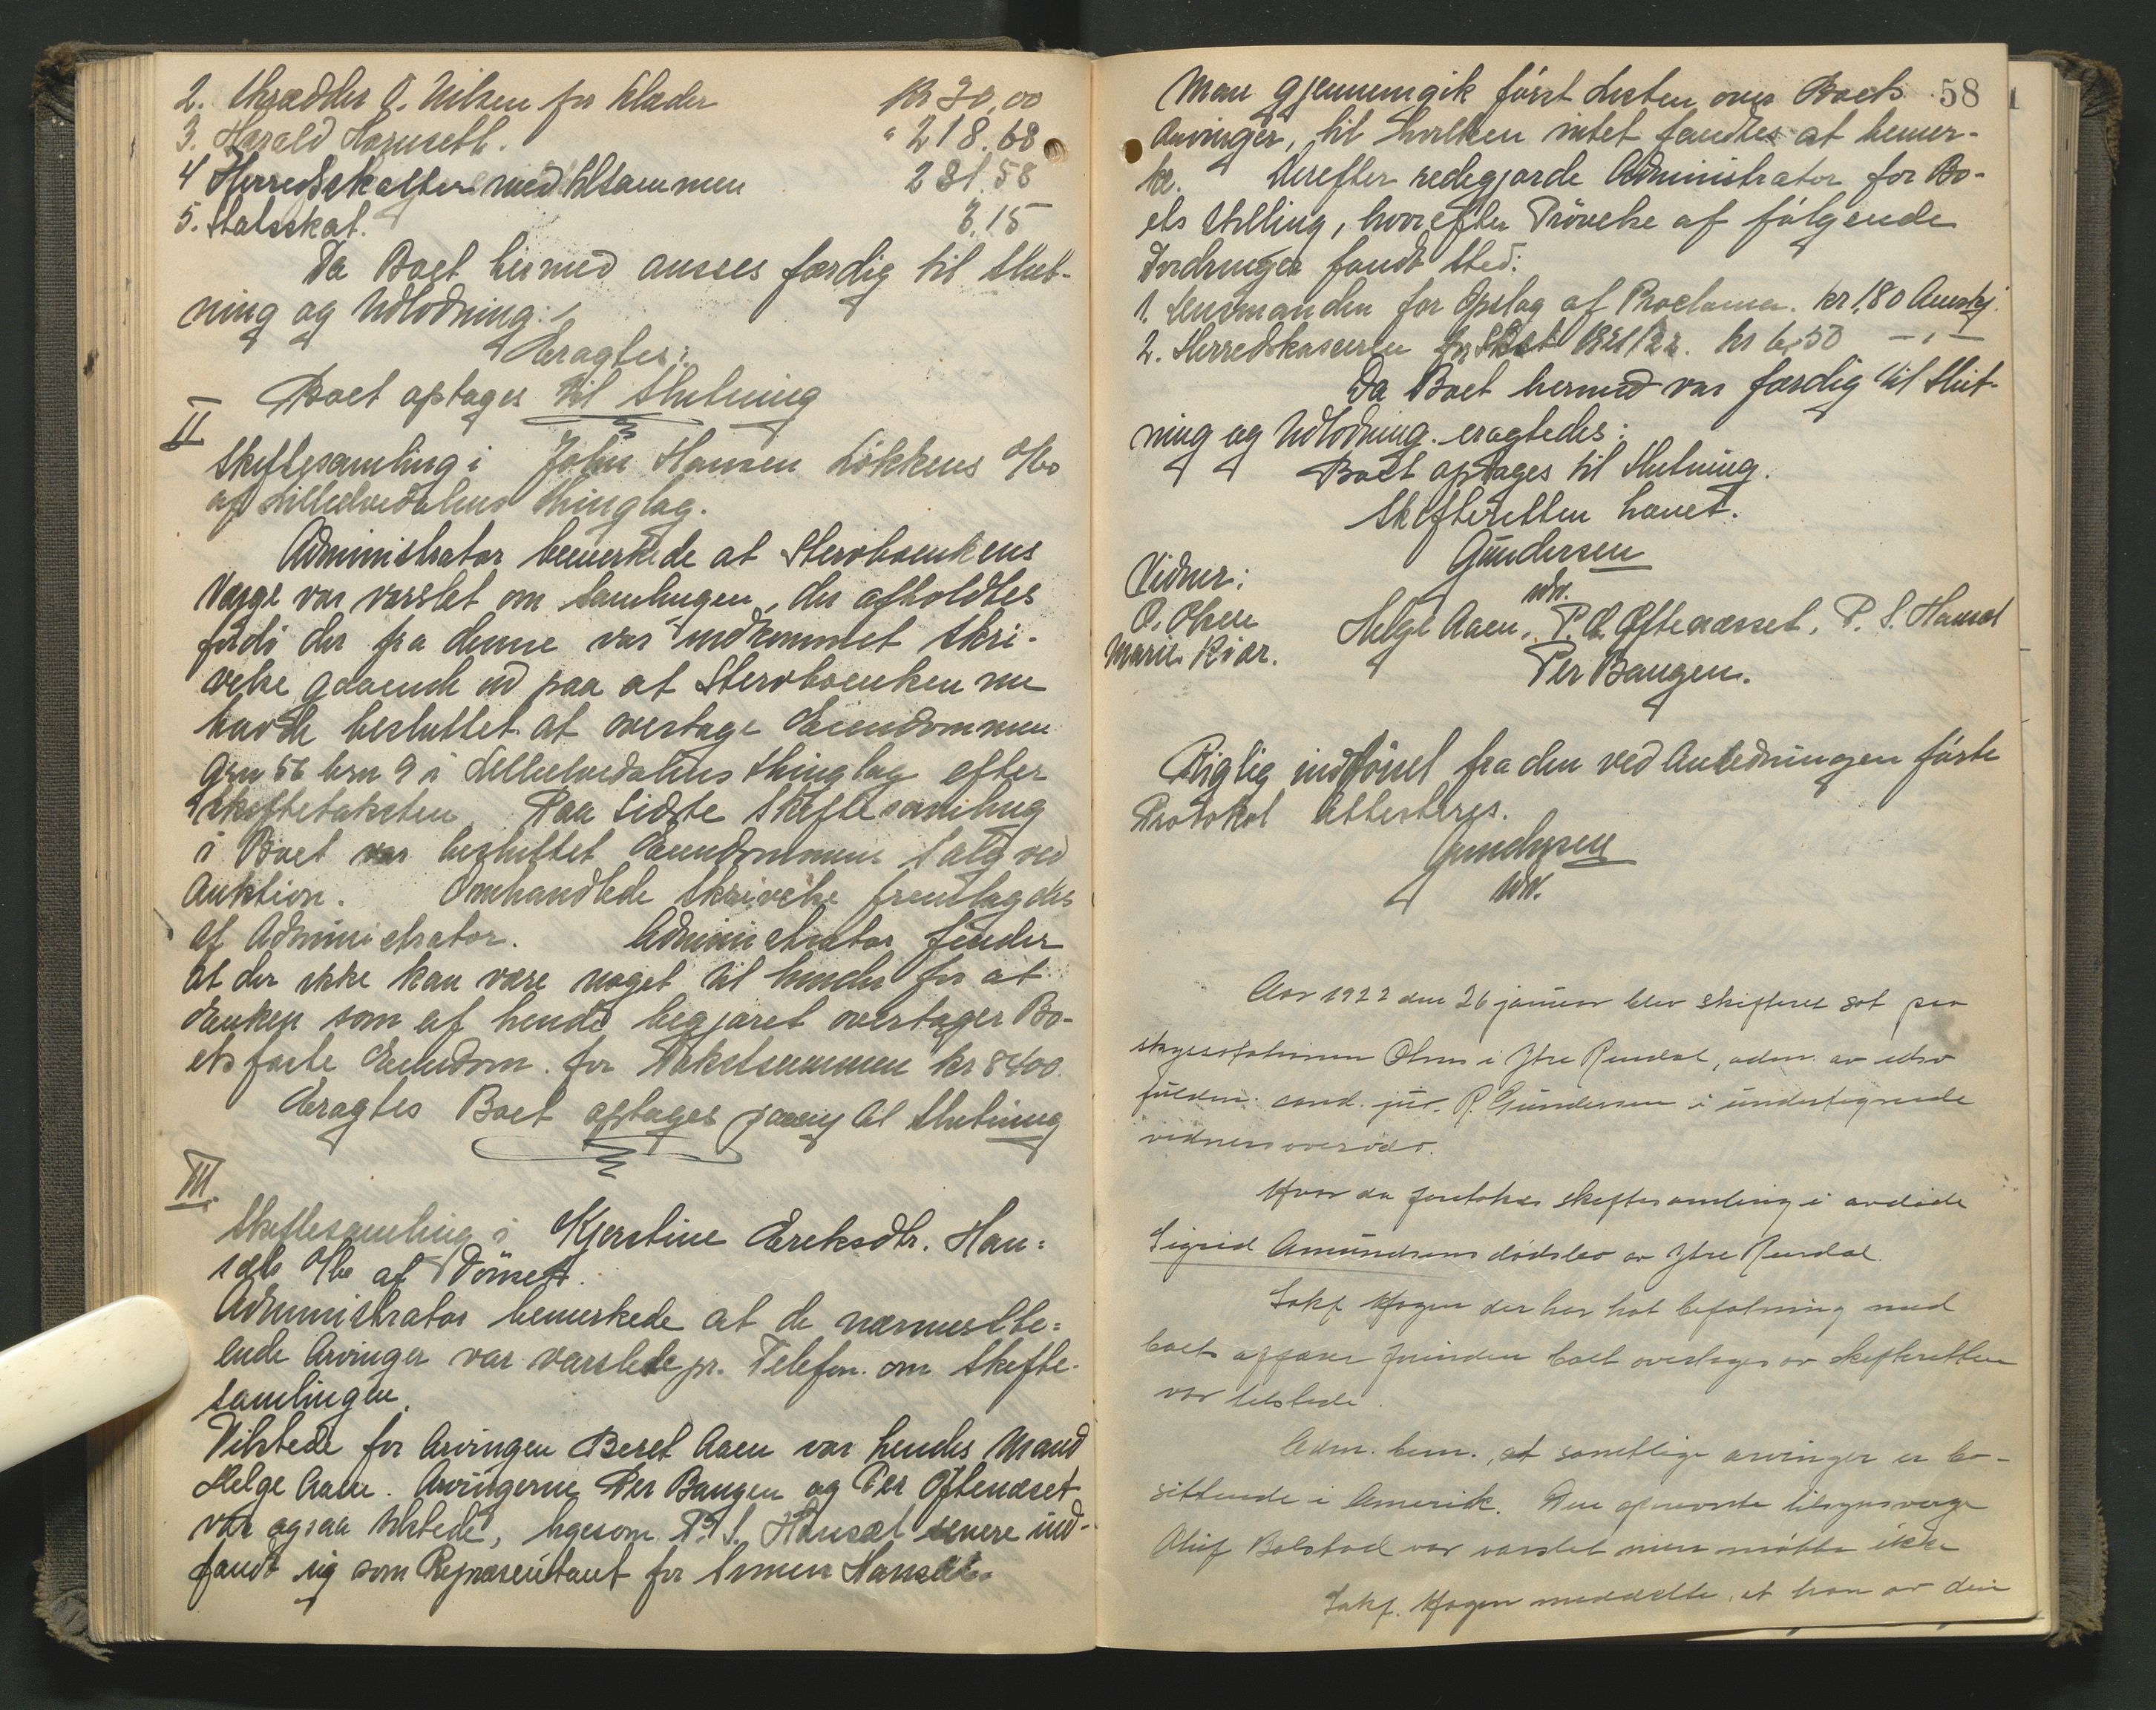 2. Skrædder O. Nilsen for Klæder Kr 30,00
3. Harald Harnseth. " 218.68
4 Herredsskatter med tilsammen 281.58
5. Statsskat. 3.15
Da Boet hermed ansees færdig til Slut-
ning og Udlodning:
Eragtes:
Boet optages til Slutning
II
Skiftesamling i John Hansen Løkkens D/bo
af Lilleelvedalens Thinglag.
Administrator bemerkede at Stervboenkens
Værge var varslet om Samlingen, der afholdtes
fordi der fra denne var indkommet Skri-
velse gaaende ud paa at Stervboenken nu
havde besluttet at overtage Eiendommen
Grn 56 brn 9 i Lilleelvedalens Thinglag efter
Skiftetaksten. Paa sidste Skiftesamling
i Boet var besluttet Eiendommen solgt ved
Auktion. Omhandlede Skrivelse fremlagdes
af Administrator. Administrator finder
at der ikke kan være noget til hinder for at
Enken som af hende begjæret overtager Bo-
ets faste Eiendom for Takstsummen kr 8400.
Eragtes Boet optages paany til Slutning
III.
Skiftesamling i Kjerstine Ereksdtr. Han-
sæts D/bo af Tønset.
Administrator bemerkede at de nærmestbo-
ende Arvinger var varslede pr. Telefon om Skifte-
samlingen.
Tilstede for Arvingen Beret Aaen var hendes Mand
Helge Aaen. Arvingerne Per Bangen og Per Øftenæset
var ogsaa tilstede, ligesom P. S. Hansæt senere ind-
fandt sig som Repræsentant for Simen Hansæt.
58
Man gjennemgik først Listen over Boets
Arvinger, til hvilken intet fandtes at bemer-
ke. Derefter redegjorde Administrator for Bo-
ets Stilling, hvorefter Prøvelse af følgende
Fordringer fandt Sted:
1. Lensmanden for Opslag af Proclama. kr 1,80 Anerkj.
2. Herredskassereren for Skat 1921/22. kr 6,50 - " -
Da Boet hermed var færdig til Slut-
ning og Udlodning. eragtedes:
Boet optages til Slutning.
Skifteretten hævet.
Gundersen
Vidner:
O. Olsen Helge Aaen, P. O. Øftenæsset, P. S. Hansæt
Marie Kiær. Per Bangen.
Rigtig indført fra den ved Anledningen førte
Protokol Attesteres.
Gundersen
Aar 1922 den 26 januar blev skifteret sat paa
skysstationen i Ytre Rendal, adm. av
fuldm. cand. jur. R. Gundersen i undertegnede
vidners overvær.
Hvor da foretokes skiftesamling i avdøde
Sigrid Amundsens dødsbo av Ytre Rendal.
Sakf. Hagen der har hat befatning med
boets affærer førinden boet overtoges av skifteretten
var tilstede.
Adm. bem., at samtlige arvinger er bo-
sittende i Amerik. Den opnævnte tilsynsverge
Oluf Bolstad var varslet men møtte ikke
Sakf. Hagen meddelte, at han av den